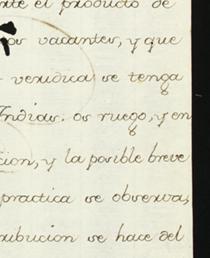 nte el producto de
os vacantes, y que
veridica se tenga
Indias. os ruego, y en
cion, y la posible breve
practica se observa,
tribucion se hace del